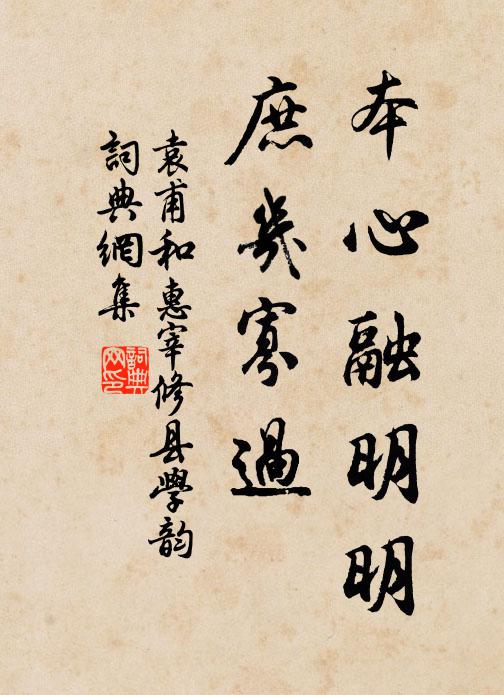 本心融明明
庶幾寡過
袁甫和惠宰修县學韵
詞典網集
詞典網印